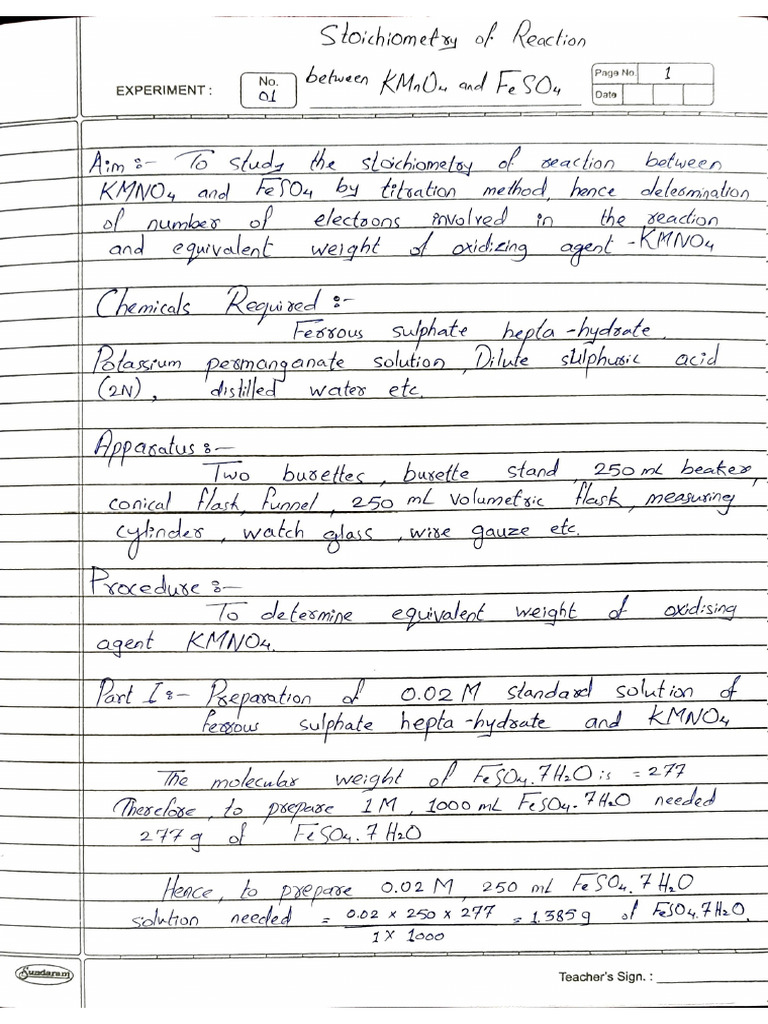 Stoichiometry of Reaction
EXPERIMENT : No. 01 between KMnO4 and FeSO4 Page No. 1
Date
Aim :- To study the stoichiometry of reaction between
KMNO4 and FeSO4 by titration method, hence determination
of number of electrons involved in the reaction
and equivalent weight of oxidizing agent - KMNO4
Chemicals Required :-
Ferrous sulphate hepta-hydrate,
Potassium permanganate solution, Dilute sulphuric acid
(2N), distilled water etc.
Apparatus :-
Two burettes, burette stand, 250 mL beaker,
conical flask, funnel, 250 mL volumetric flask, measuring
cylinder, watch glass, wire gauze etc.
Procedure :-
To determine equivalent weight of oxidising
agent KMNO4.
Part I :- Preparation of 0.02 M standard solution of
ferrous sulphate hepta-hydrate and KMNO4
The molecular weight of FeSO4.7H2O is = 277
Therefore, to prepare 1M, 1000 mL FeSO4.7H2O needed
277 g of FeSO4.7H2O
Hence, to prepare 0.02 M, 250 ml FeSO4.7H2O
solution needed = 0.02 × 250 × 277 / 1 × 1000 = 1.385 g of FeSO4.7H2O.
Sundaram
Teacher's Sign. :